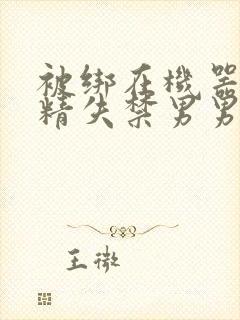 被绑在機器
精失禁男男
王微